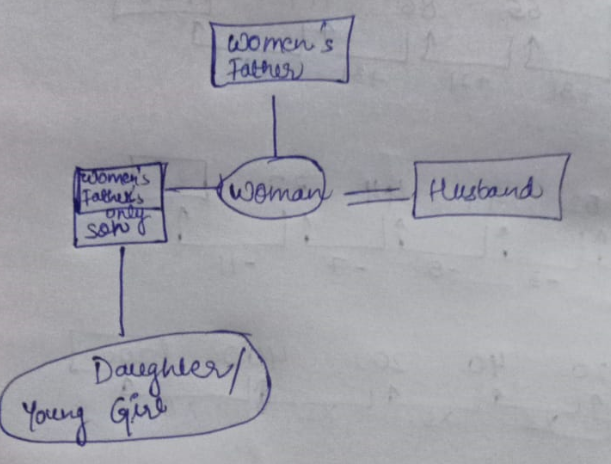 Women's
Father
Women's
Father's
only
son
Woman
Husband
Daughter/
Young Girl